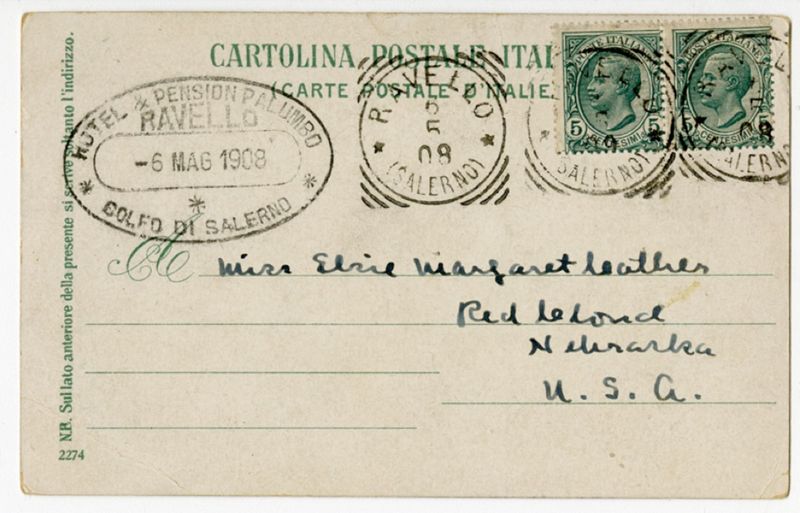 CARTOLINA POSTALE ITAL
(CARTE POSTALE D'ITALIE
HOTEL & PENSION PALUMBO
RAVELLO
-6 MAG 1908
GOLFO DI SALERNO
RAVELLO
5
08
(SALERNO)
POSTE ITALIANE
5
(SALERNO)
POSTE ITALIANE
5
08
SALERNO
Miss Elsie Margaret Cather
Red Cloud
Nebraska
U. S. A.
N.B. Sul lato anteriore della presente si scrive soltanto l'indirizzo.
2274